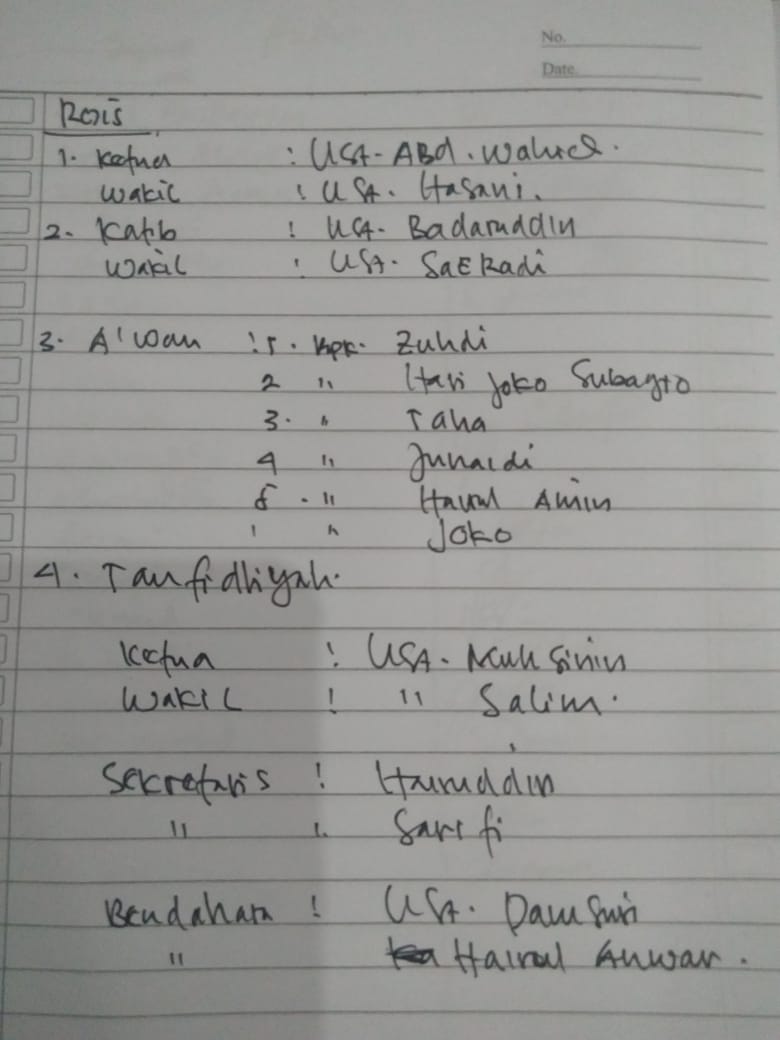 No.
Date.
Rois
1. Ketua : USt. ABd. Wahid.
Wakil : USt. Hasani.
2. Katib : USt. Badaruddin
Wakil : USt. SaERadi
3. A'wan : 1. Bpk. Zuhdi
2 " Hari Joko Subagyo
3. " Taha
4 " Junaidi
5. " Hairul Amin
" Joko
4. Tanfidhiyah.
Ketua : USt. Muhsinin
Wakil : " Salim.
Sekretaris : Hairuddin
" : Sarifi
Bendahara : USt. Damsuri
" Hairul Anwar.